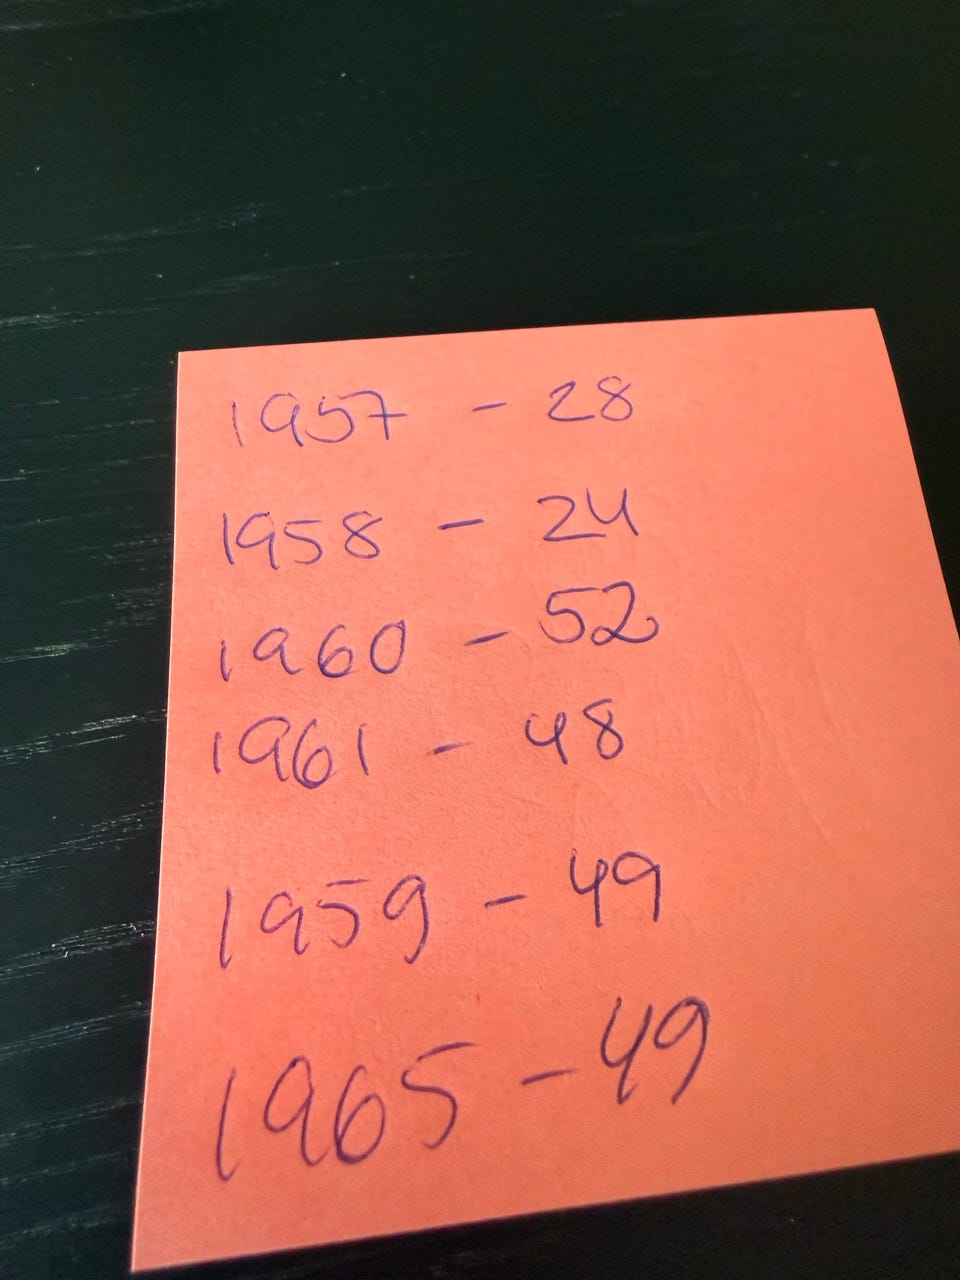 1957 - 28
1958 - 24
1960 - 52
1961 - 48
1959 - 49
1965 - 49